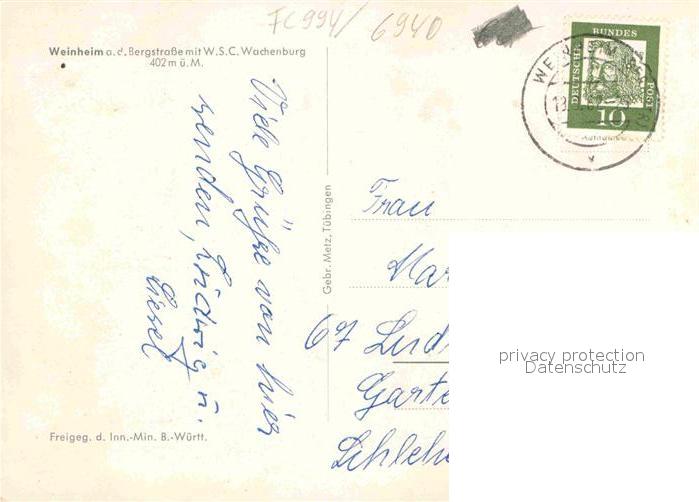 FC994/ 6940
Weinheim a. d. Bergstraße mit W.S.C. Wachenburg
402 m ü. M.
DEUTSCHE BUNDESPOST
10
WEINHEIM
Viele Grüße von hier
senden, Ludwig u.
Liesel
Gebr. Metz, Tübingen
Frau
Mar
67 Lud
Garte
privacy protection
Datenschutz
Freigeg. d. Inn.-Min. B.-Württ.